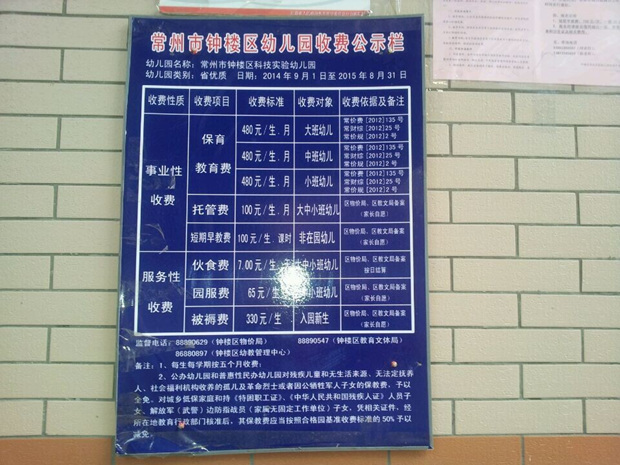 常州市钟楼区幼儿园收费公示栏
幼儿园名称：常州市钟楼区科技实验幼儿园
幼儿园类别：省优质 日期：2014年9月1日至2015年8月31日
收费性质 收费项目 收费标准 收费对象 收费依据及备注
事业性收费
保育教育费
480元/生．月 大班幼儿
常价费[2012]135号
常财综[2012]25号
常价规[2012]2号
480元/生．月 中班幼儿
常价费[2012]135号
常财综[2012]25号
常价规[2012]2号
480元/生．月 小班幼儿
常价费[2012]135号
常财综[2012]25号
常价规[2012]2号
托管费 100元/生．月 大中小班幼儿 区物价局、区教文局备案
（家长自愿）
短期早教费 100元/生．课时 非在园幼儿 区物价局、区教文局备案
（家长自愿）
服务性收费
伙食费 7.00元/生． 中小班幼儿 区物价局、区教文局备案
按日结算
园服费 65元/生 小班幼儿 区物价局、区教文局备案
（家长自愿）
被褥费 330元/生 入园新生 区物价局、区教文局备案
（家长自愿）
监督电话：88890629（钟楼区物价局） 88890547（钟楼区教育文体局）
86880897（钟楼区幼教管理中心）
备注：1、每生每学期按五个月收费；
2、公办幼儿园和普惠性民办幼儿园对残疾儿童和无生活来源、无法定抚养
人、社会福利机构收养的孤儿及革命烈士或者因公牺牲军人子女的保教费，予以
全免。对城乡低保家庭和持《特困职工证》、《中华人民共和国残疾人证》人员子
女、解放军（武警）边防指战员（家属无固定工作单位）子女，凭相关证件，经
所在地教育行政部门核准后，其保教费应当按照合格园基准收费标准的50%予以
减免。